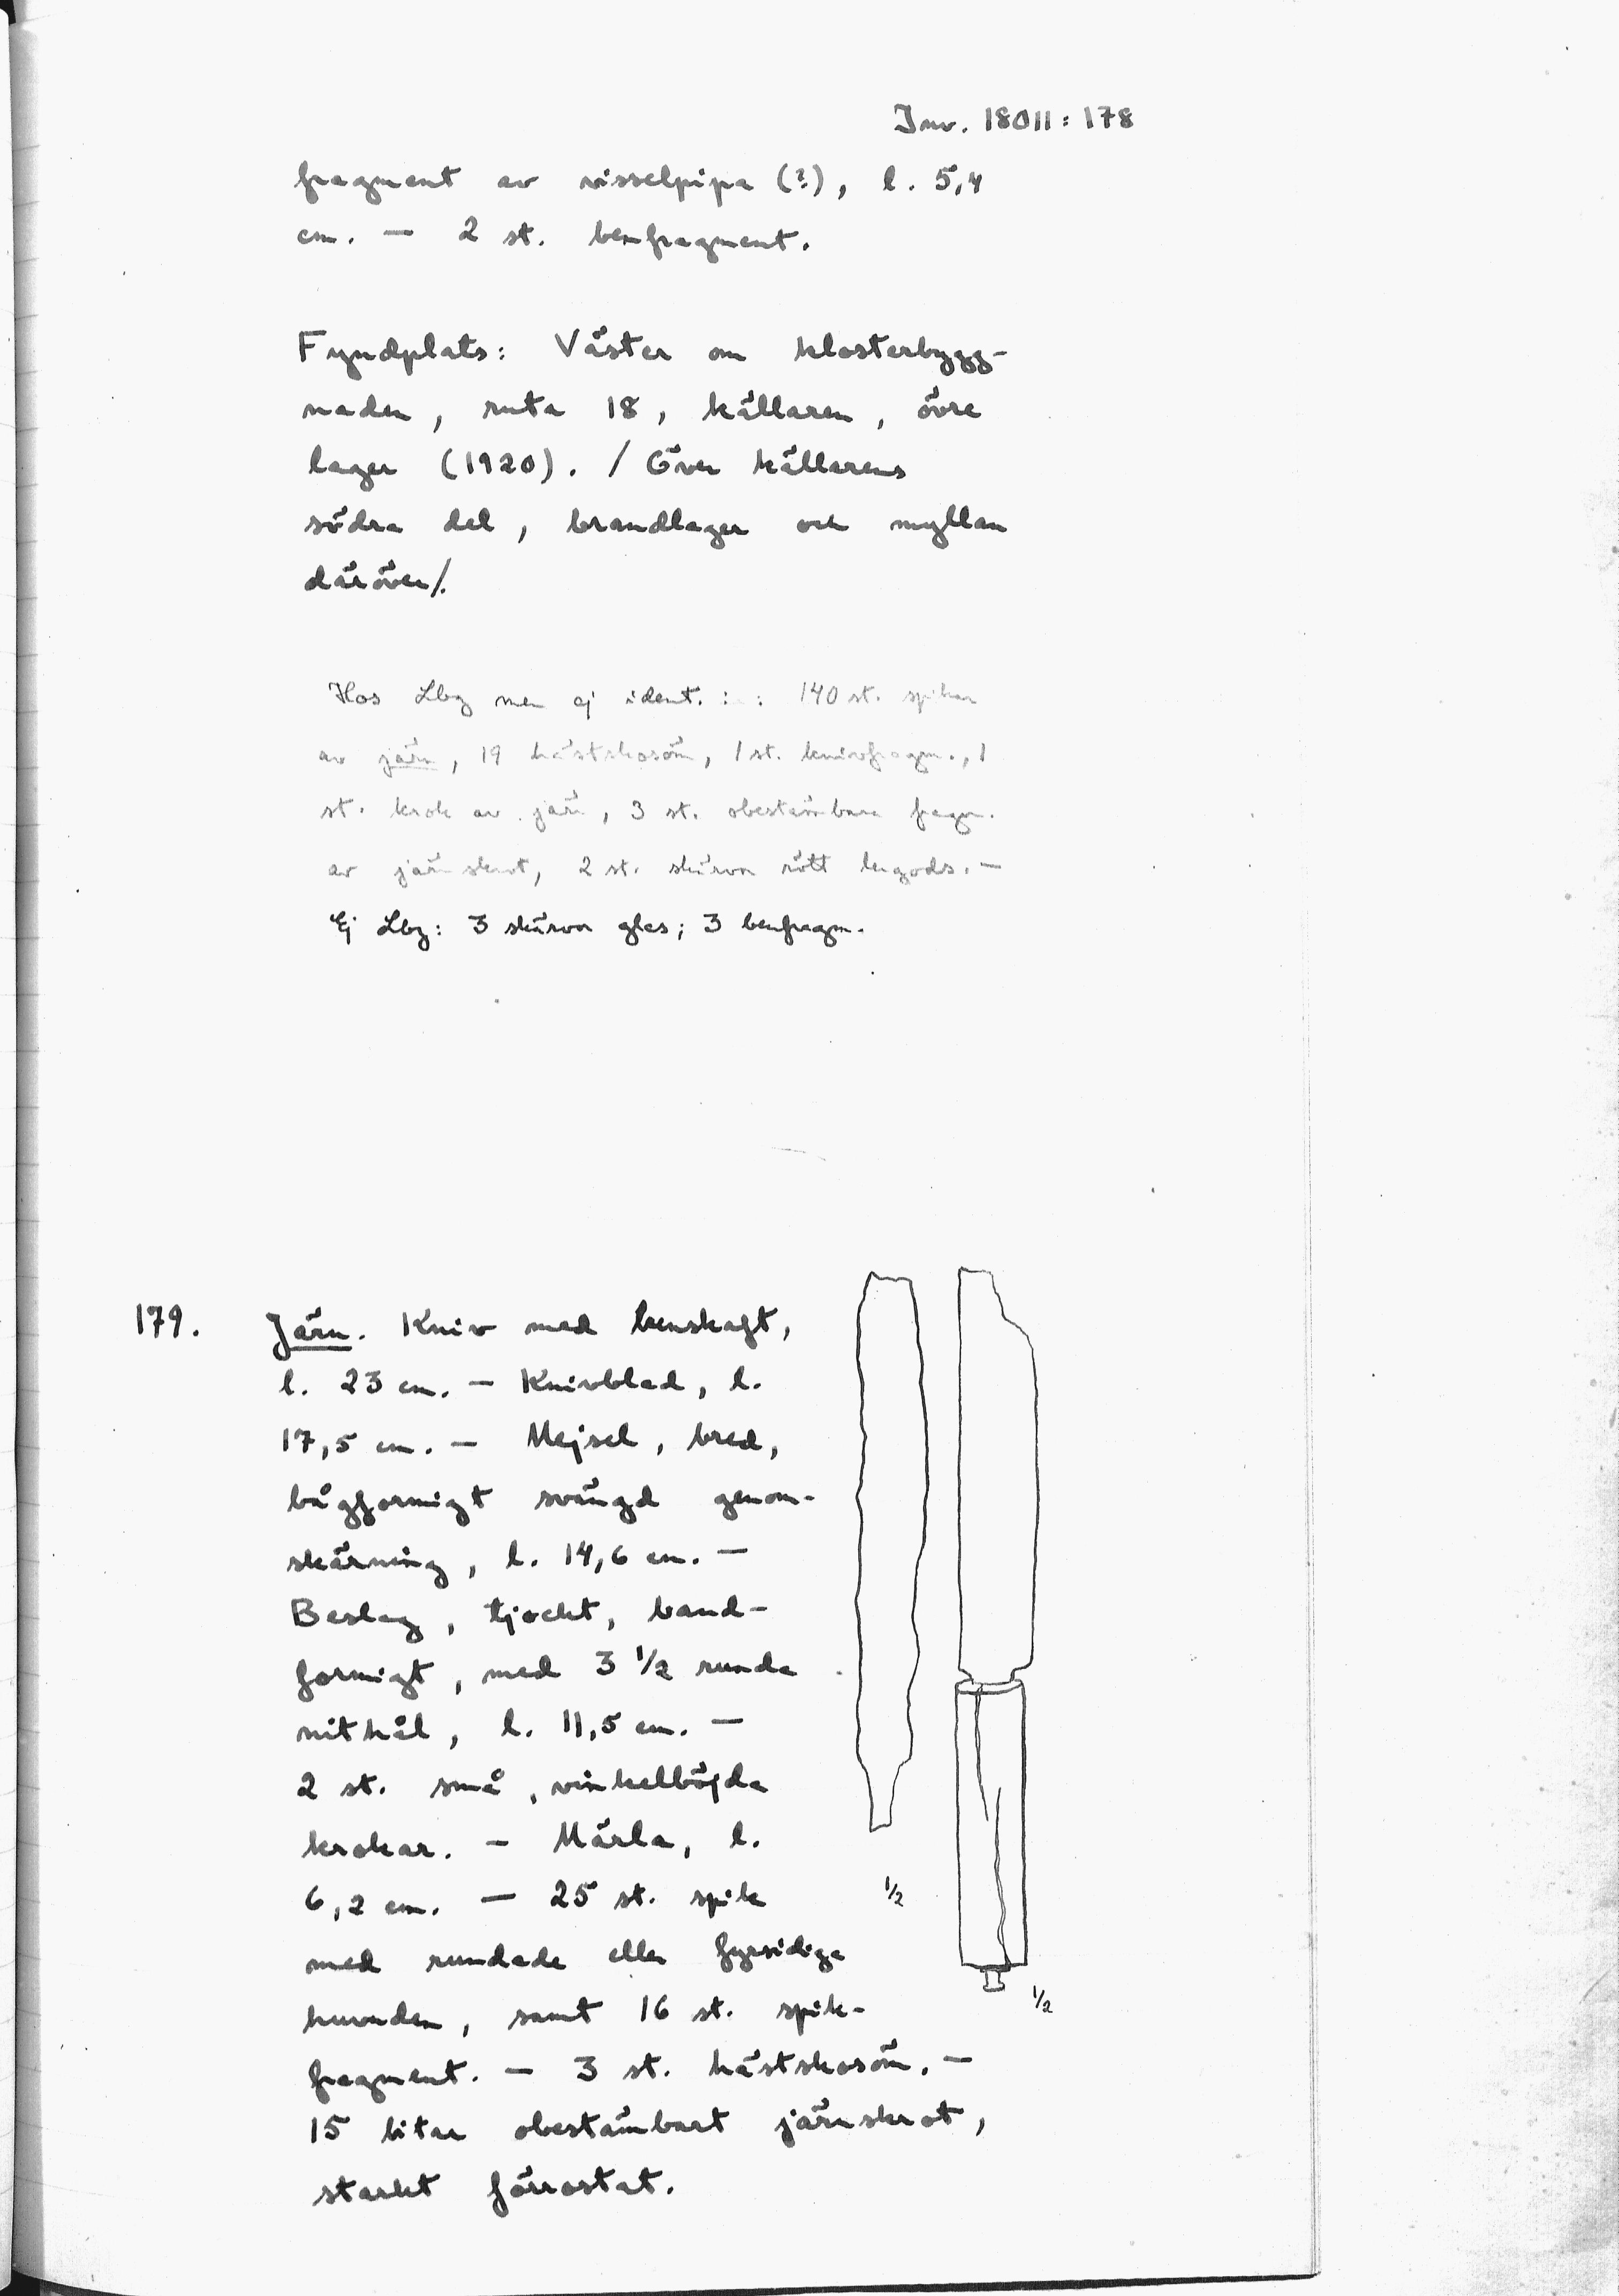 Inv. 18011:178
fragment av visselpipa (?), l. 5,4
cm. — 2 st. benfragment.
Fyndplats: Väster om klosterbygg-
naden, ruta 18, källaren, övre
lager (1920). / Över källarens
södra del, brandlager och myllan
däröver/.
Hos Lbg men ej ident. : : 140 st. spikar
av järn, 19 hästskosöm, 1 st. knivfragm., 1
st. krok av järn, 3 st. obestämbara fragm.
av järnskrot, 2 st. skärvor rött lergods. —
Ej Lbg: 3 skärvor glas; 3 benfragm.
179. Järn. Kniv med benskaft,
l. 23 cm. — Knivblad, l.
17,5 cm. — Mejsel, bred,
bågformigt svängd genom-
skärning, l. 14,6 cm. —
Beslag, tjockt, band-
formigt, med 3 1/2 runda
nithål, l. 11,5 cm. —
2 st. små, vinkelböjda
krokar. — Märla, l.
6,2 cm. — 25 st. spik
med rundade eller fyrsidiga
huvuden, samt 16 st. spik-
fragment. — 3 st. hästskosöm. —
15 bitar obestämbart järnskrot,
starkt förrostat.
1/2
1/2